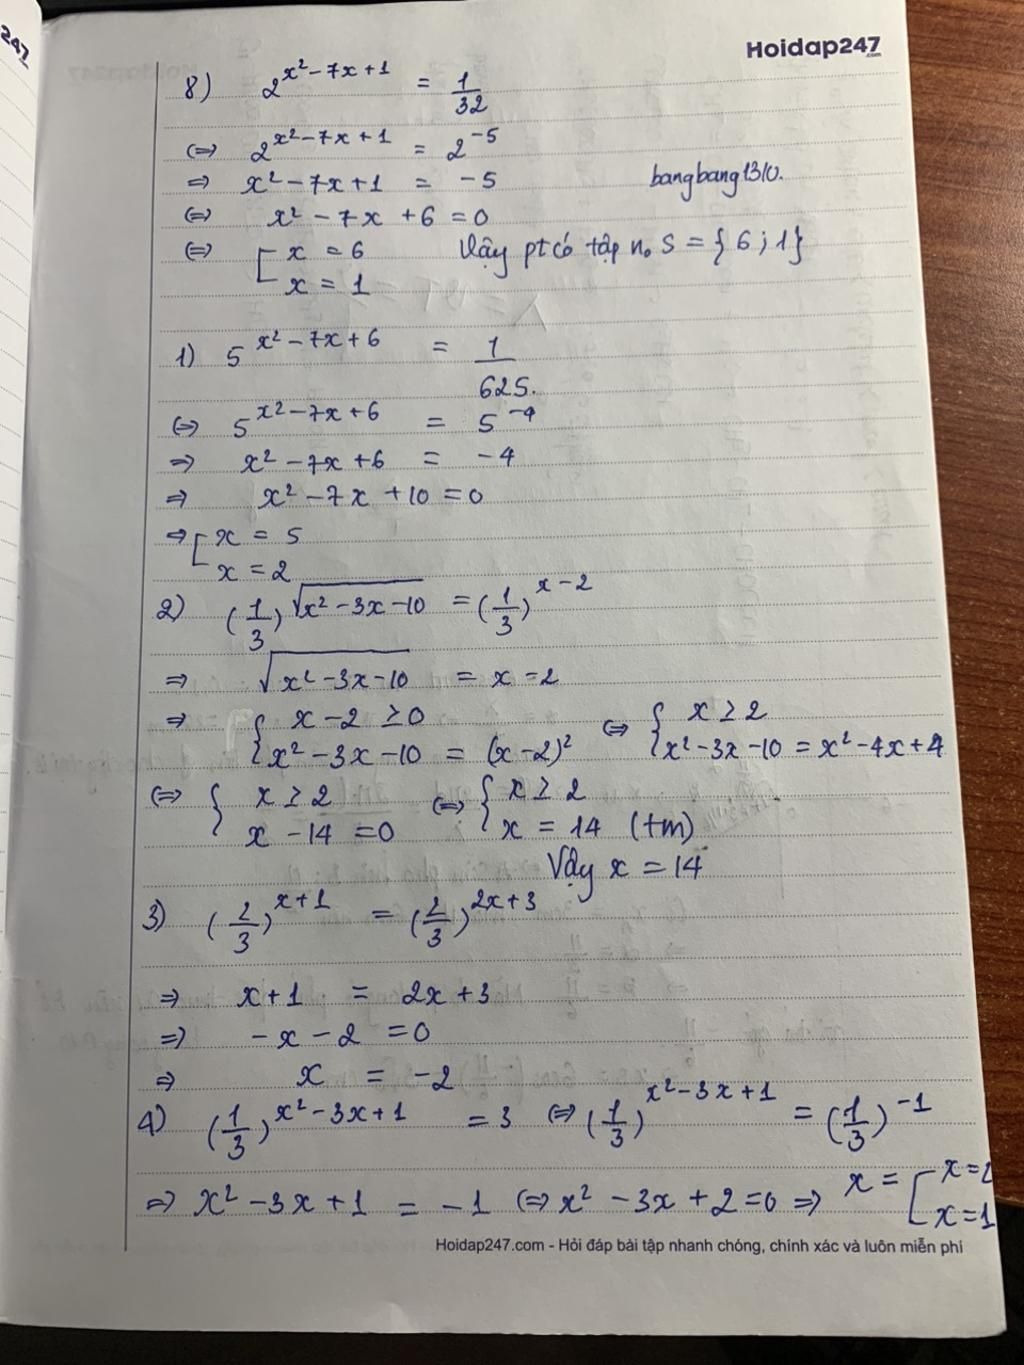 247
Hoidap247.com
8) 2^{x² - 7x + 1} = 1/32
⇔ 2^{x² - 7x + 1} = 2^{-5}
⇒ x² - 7x + 1 = -5
bangbang1310.
⇔ x² - 7x + 6 = 0
⇔ [ x = 6
x = 1
Vậy pt có tập n₀ S = { 6 ; 1 }
1) 5^{x² - 7x + 6} = 1/625.
⇔ 5^{x² - 7x + 6} = 5^{-4}
⇒ x² - 7x + 6 = -4
⇒ x² - 7x + 10 = 0
⇒ [ x = 5
x = 2
2) (1/3)^{√(x² - 3x - 10)} = (1/3)^{x - 2}
⇒ √(x² - 3x - 10) = x - 2
⇒ { x - 2 ≥ 0 ⇔ { x ≥ 2
x² - 3x - 10 = (x - 2)² x² - 3x - 10 = x² - 4x + 4
⇔ { x ≥ 2 ⇔ { x ≥ 2
x - 14 = 0 x = 14 (tm)
Vậy x = 14
3) (2/3)^{x + 1} = (2/3)^{2x + 3}
⇒ x + 1 = 2x + 3
⇒ -x - 2 = 0
⇒ x = -2
4) (1/3)^{x² - 3x + 1} = 3 ⇔ (1/3)^{x² - 3x + 1} = (1/3)^{-1}
⇒ x² - 3x + 1 = -1 ⇔ x² - 3x + 2 = 0 ⇒ x = [ x = 2
x = 1
Hoidap247.com - Hỏi đáp bài tập nhanh chóng, chính xác và luôn miễn phí